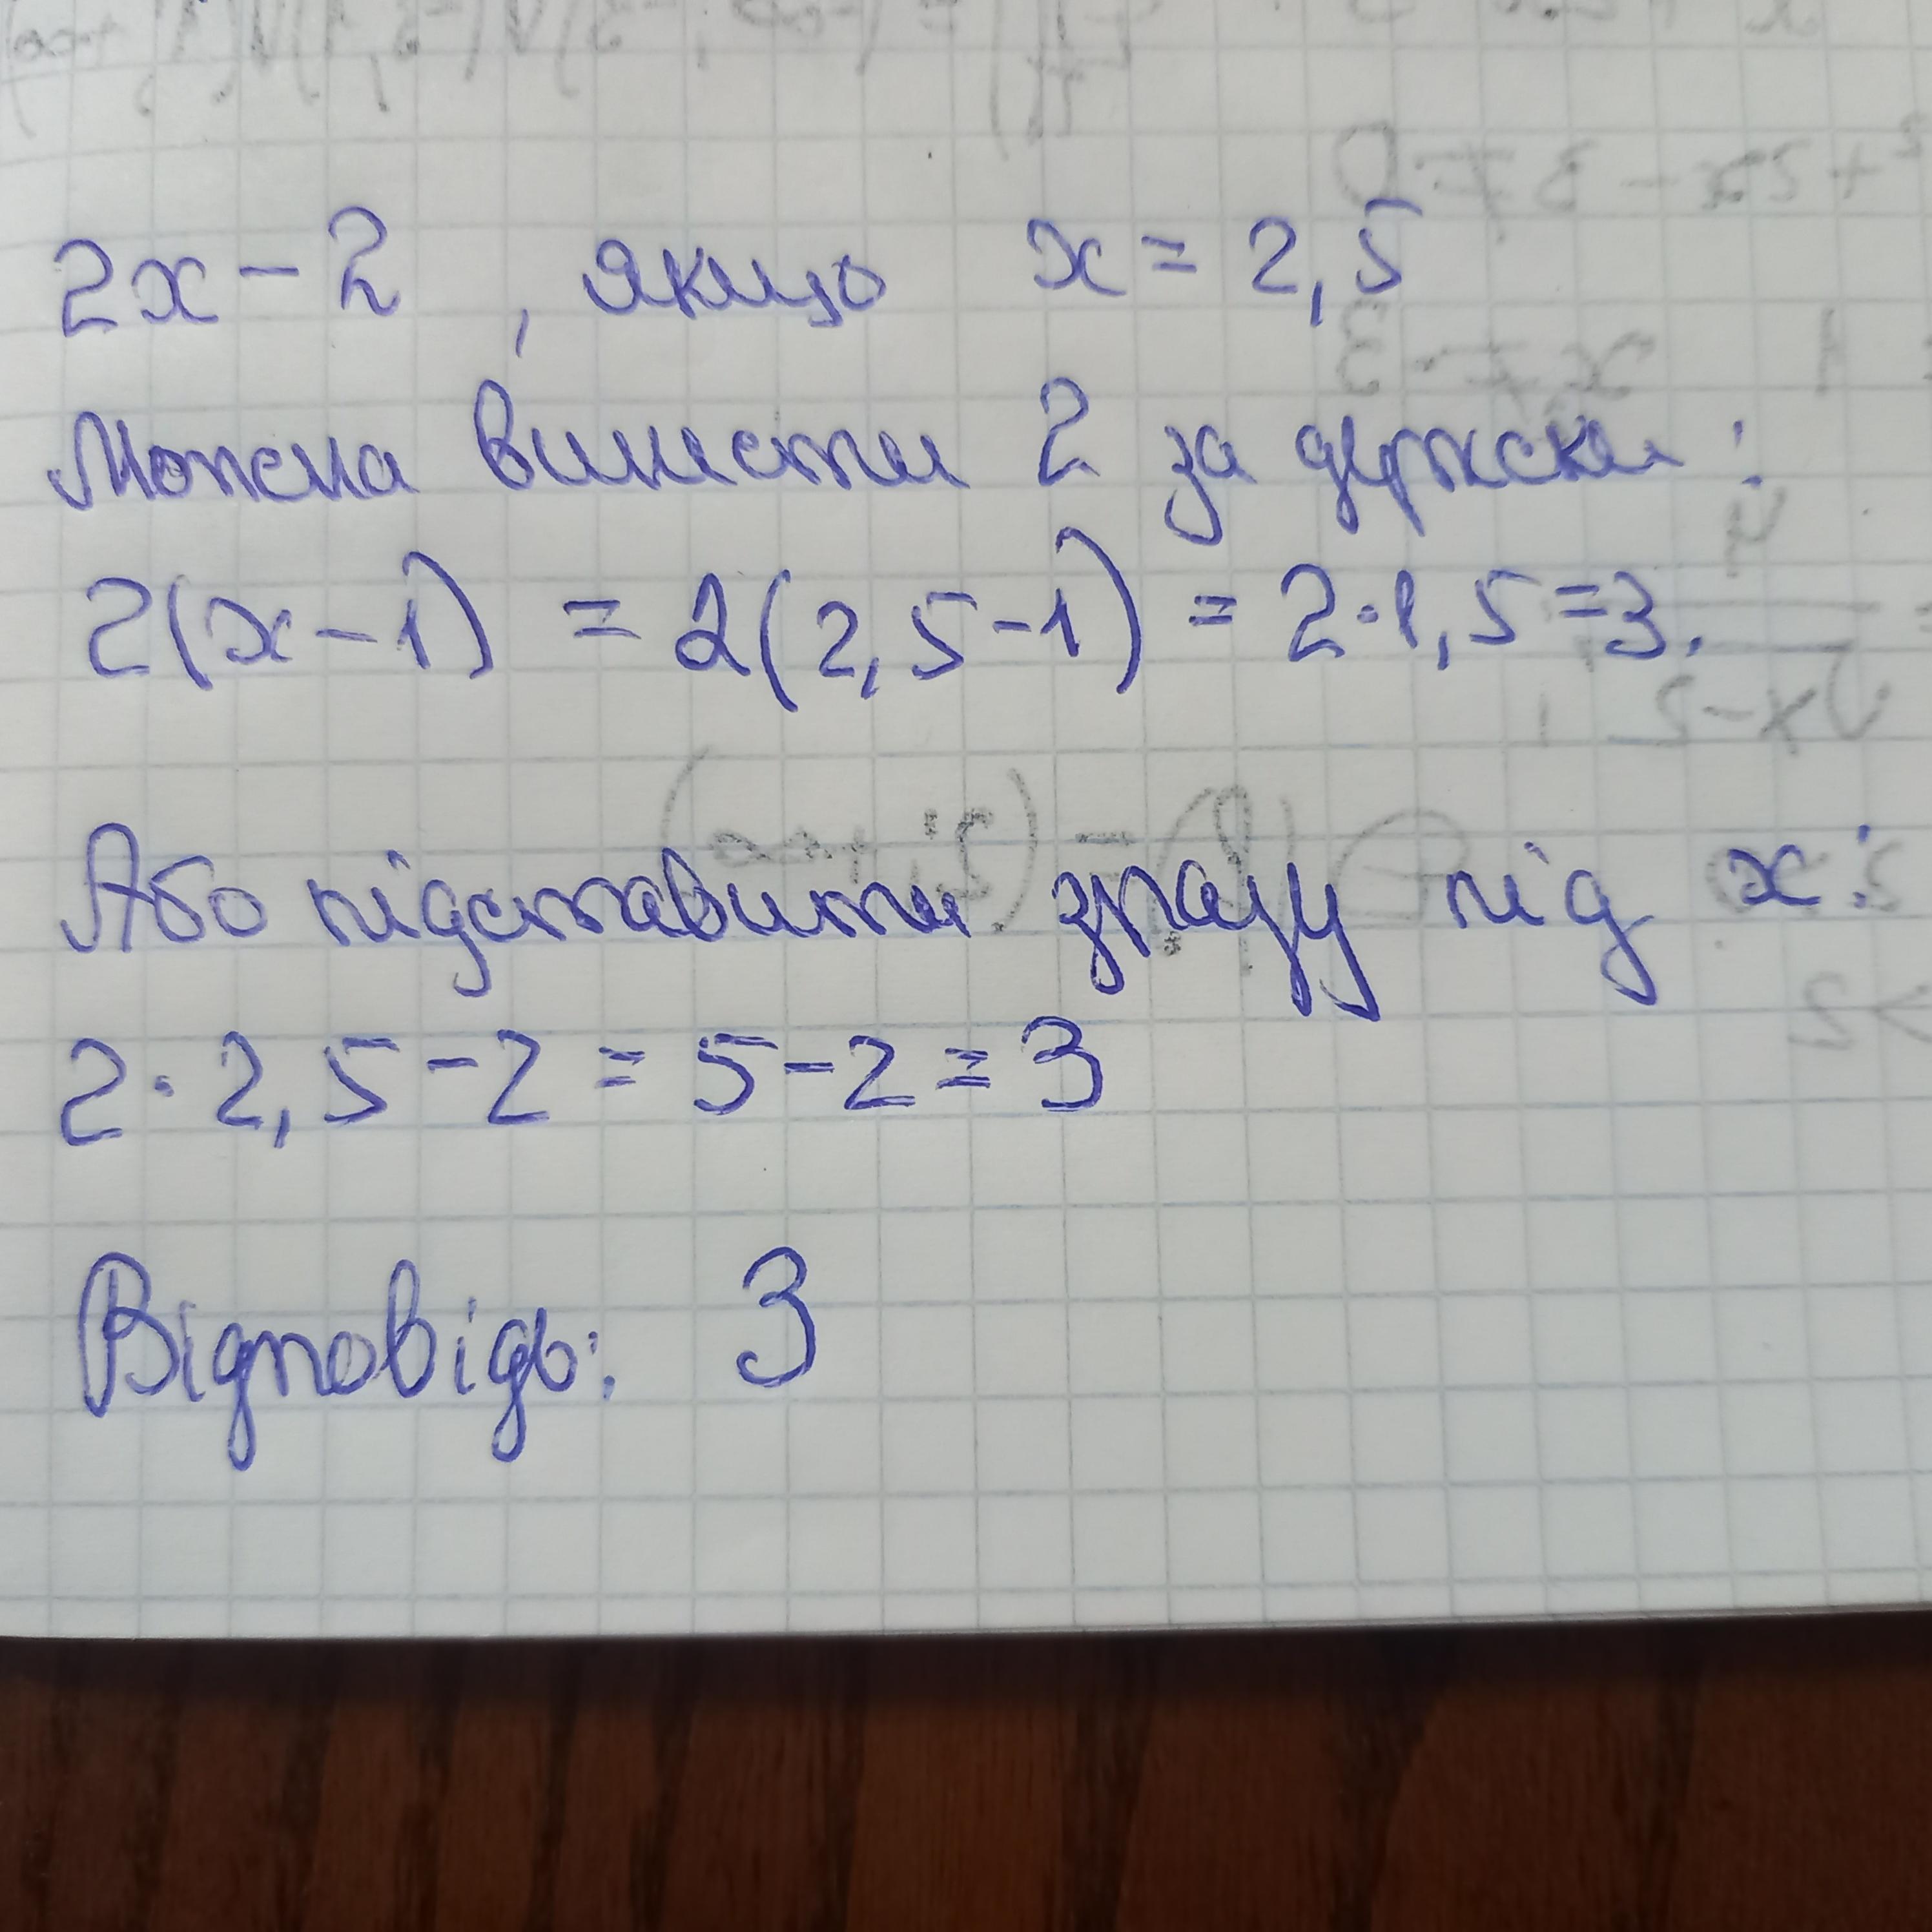 2x - 2 , якщо x = 2,5
Можна винести 2 за дужки:
2(x-1) = 2(2,5-1) = 2·1,5=3.
Або підставити зразу під x:
2·2,5-2 = 5-2=3
Відповідь: 3